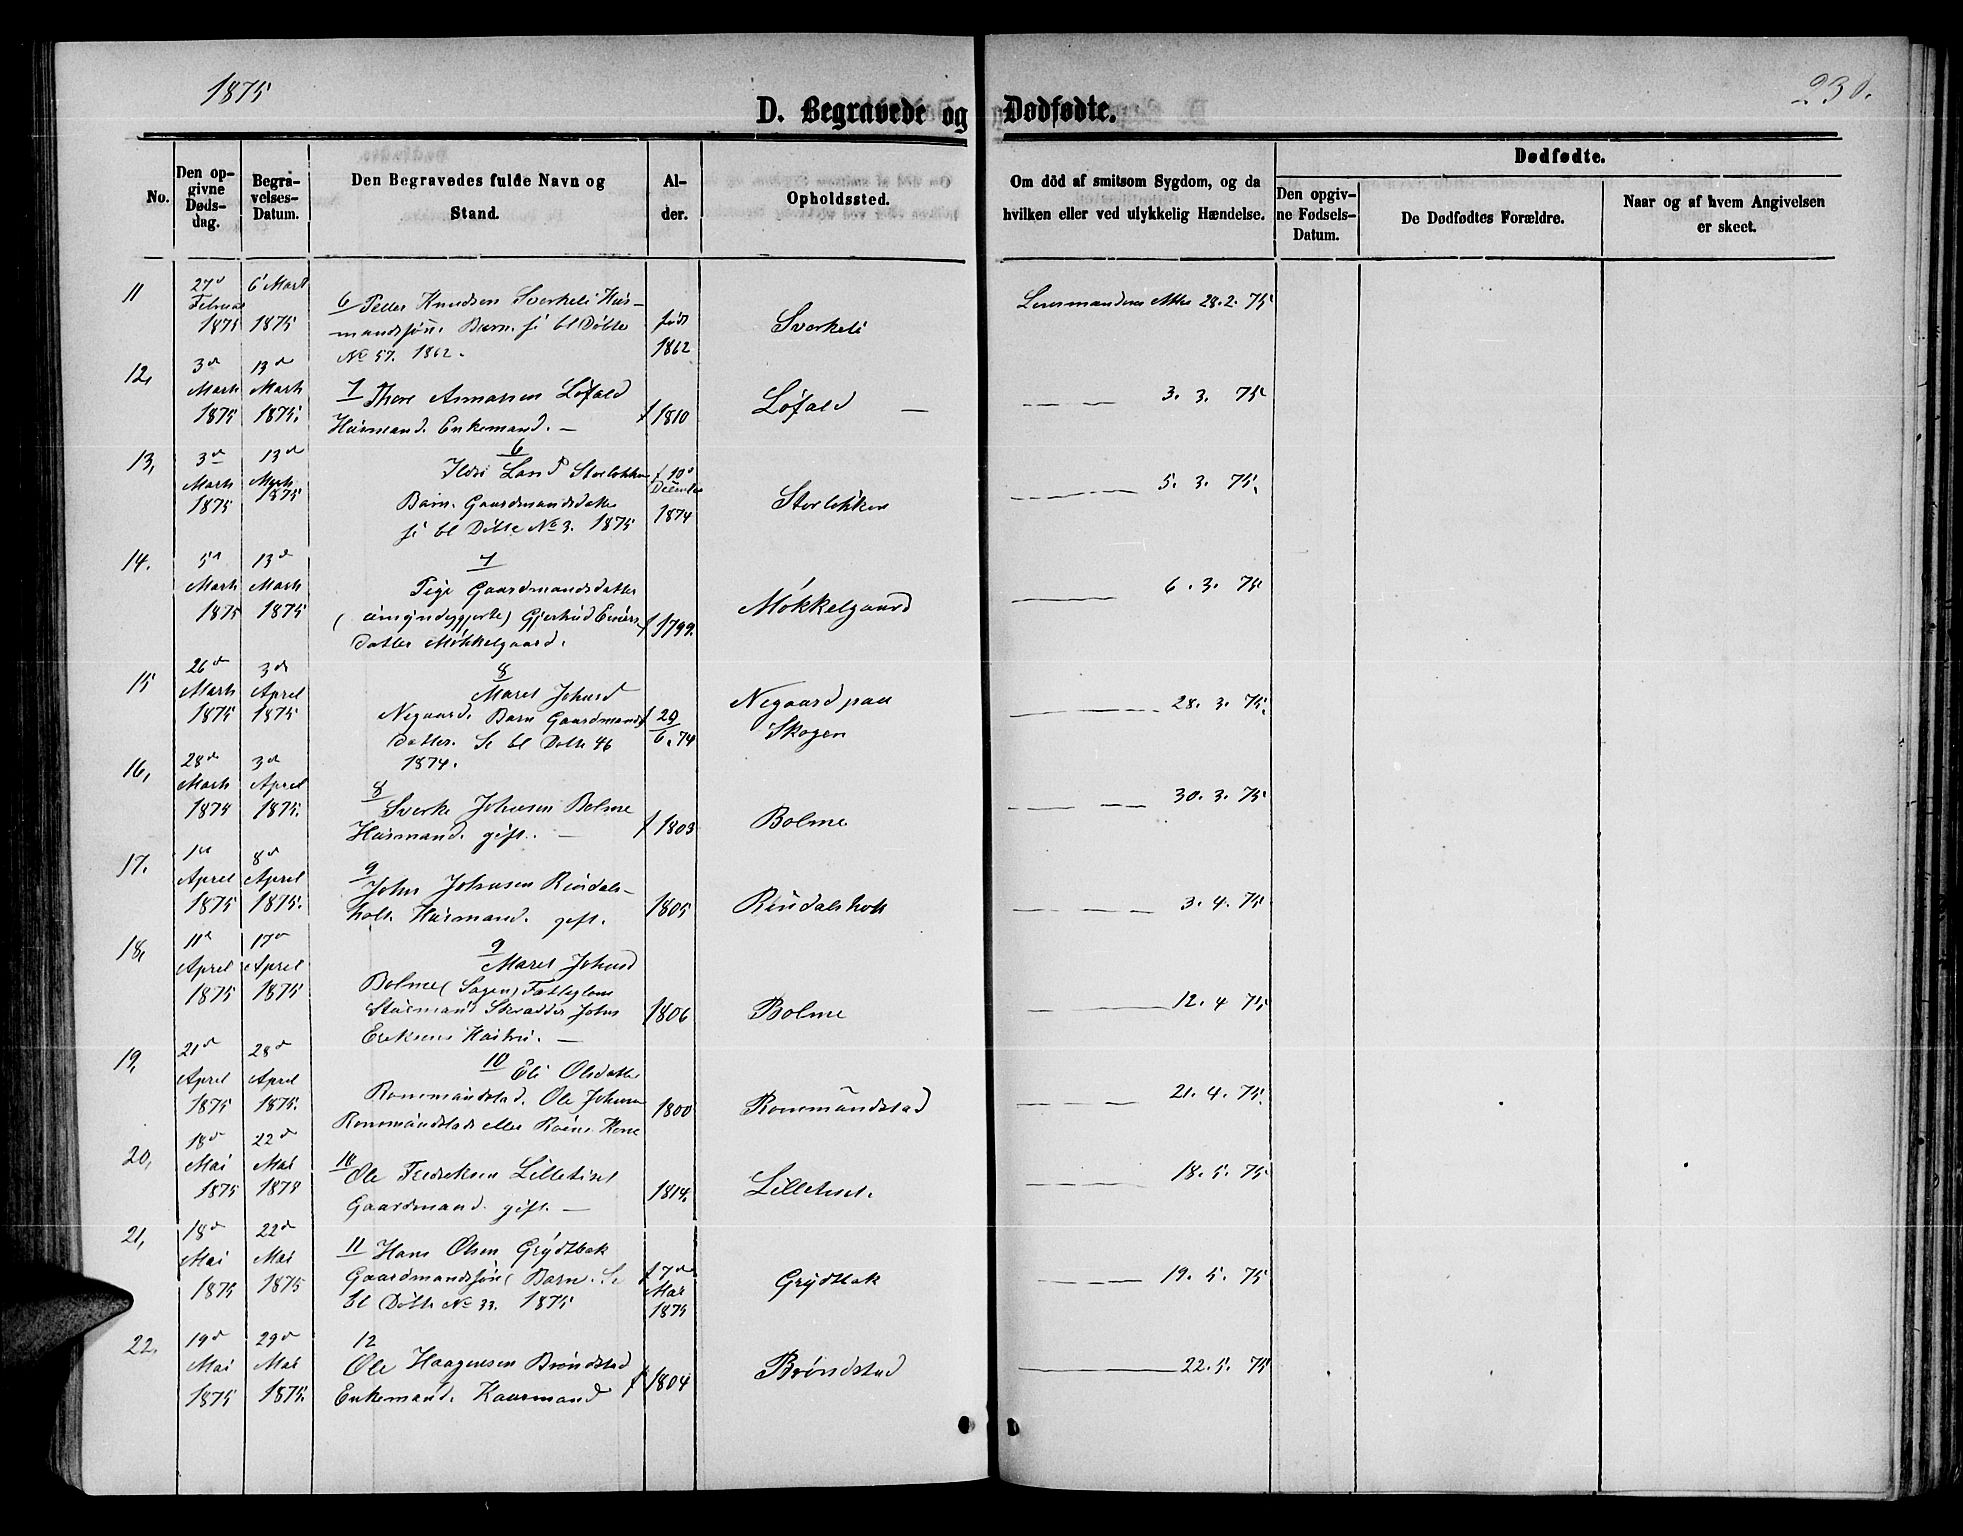 1875
230.
D. Begravede og Dødfødte.
No.
Den opgivne Dødsdag.
Begravelses-Datum.
Den Begravedes fulde Navn og Stand.
Alder.
Opholdssted.
Om död af smitsom Sygdom, og da hvilken eller ved ulykkelig Hændelse.
Dødfødte.
Den opgivne Fødsels-Datum.
De Dødfødtes Forældre.
Naar og af hvem Angivelsen er skeet.
11
27d Februar 1875
6 Marts 1875
6 Peder Knudsen Sverkeli Hus-
mandssøn. Barn. se bl Døbte
No 57. 1862.
født 1862
Sverkeli
Lensmandens 28. 2. 75
12,
3d Marts 1875
13d Marts 1875.
7 Thore Løfald
Husmand. Enkemand. —
f 1810
Løfald —
3. 3. 75
13,
3d Marts 1875
13d Marts 1875
6
Storløkken
Barn. Gaardmandsdatter
se bl Døbte No 3. 1875
f 10d December 1874
Storløkken
5. 3. 75.
14.
5d Marts 1875
13d Marts 1875
7
Pige Gaardmandsdatter
(umyndiggjorte) Gjertrud
datter Møkkelgaard.
f 1799.
Møkkelgaard
6. 3. 75
15
26d Marts 1875
3d April 1875
8
Maret Johnsd
Negaard. Barn Gaardmands
datter. Se bl Døbte 46
1874.
f 29/6. 74
Negaard paa
Skogen
28. 3. 75.
16,
28d Marts 1875
3d April 1875.
8
Sverke Johnsen Bolme
Husmand. gift. —
f 1803
Bolme
30. 3. 75
17.
1st April 1875
8d April 1875.
9
John Johnsen Rindals-
holt. Husmand. gift.
1805
Rindalsholt
3. 4. 75
18,
11d April 1875
17d April 1875
9
Maret Johnsd
Bolme (Sagen) Fattiglem
Skrædder John
Eriksens Hustru. —
1806
Bolme
12. 4 75
19,
21d April 1875
28d April 1875.
10
Eli Olsdatter
Rommundstad. Ole Johnsen
Rommundstads eller Kone
1800
Rommundstad
21. 4. 75.
20,
18d Mai 1875
22d Mai 1875
10
Ole Fredriksen Lilletiset
Gaardmand. gift. —
1814.
Lilletiset.
18. 5. 75
21,
18d Mai 1875
22d Mai 1875
11 Hans Olsen Grydtbak
Gaardmandssøn (Barn. Se
bl Døbte No 33. 1875
f 7d Mai 1875
Grydtbak
19. 5. 75
22.
19d Mai 1875
29d Mai 1875.
12
Ole Haagensen Brøndstad
Enkemand. Kaarmand
f 1804
Brøndstad
22. 5. 75